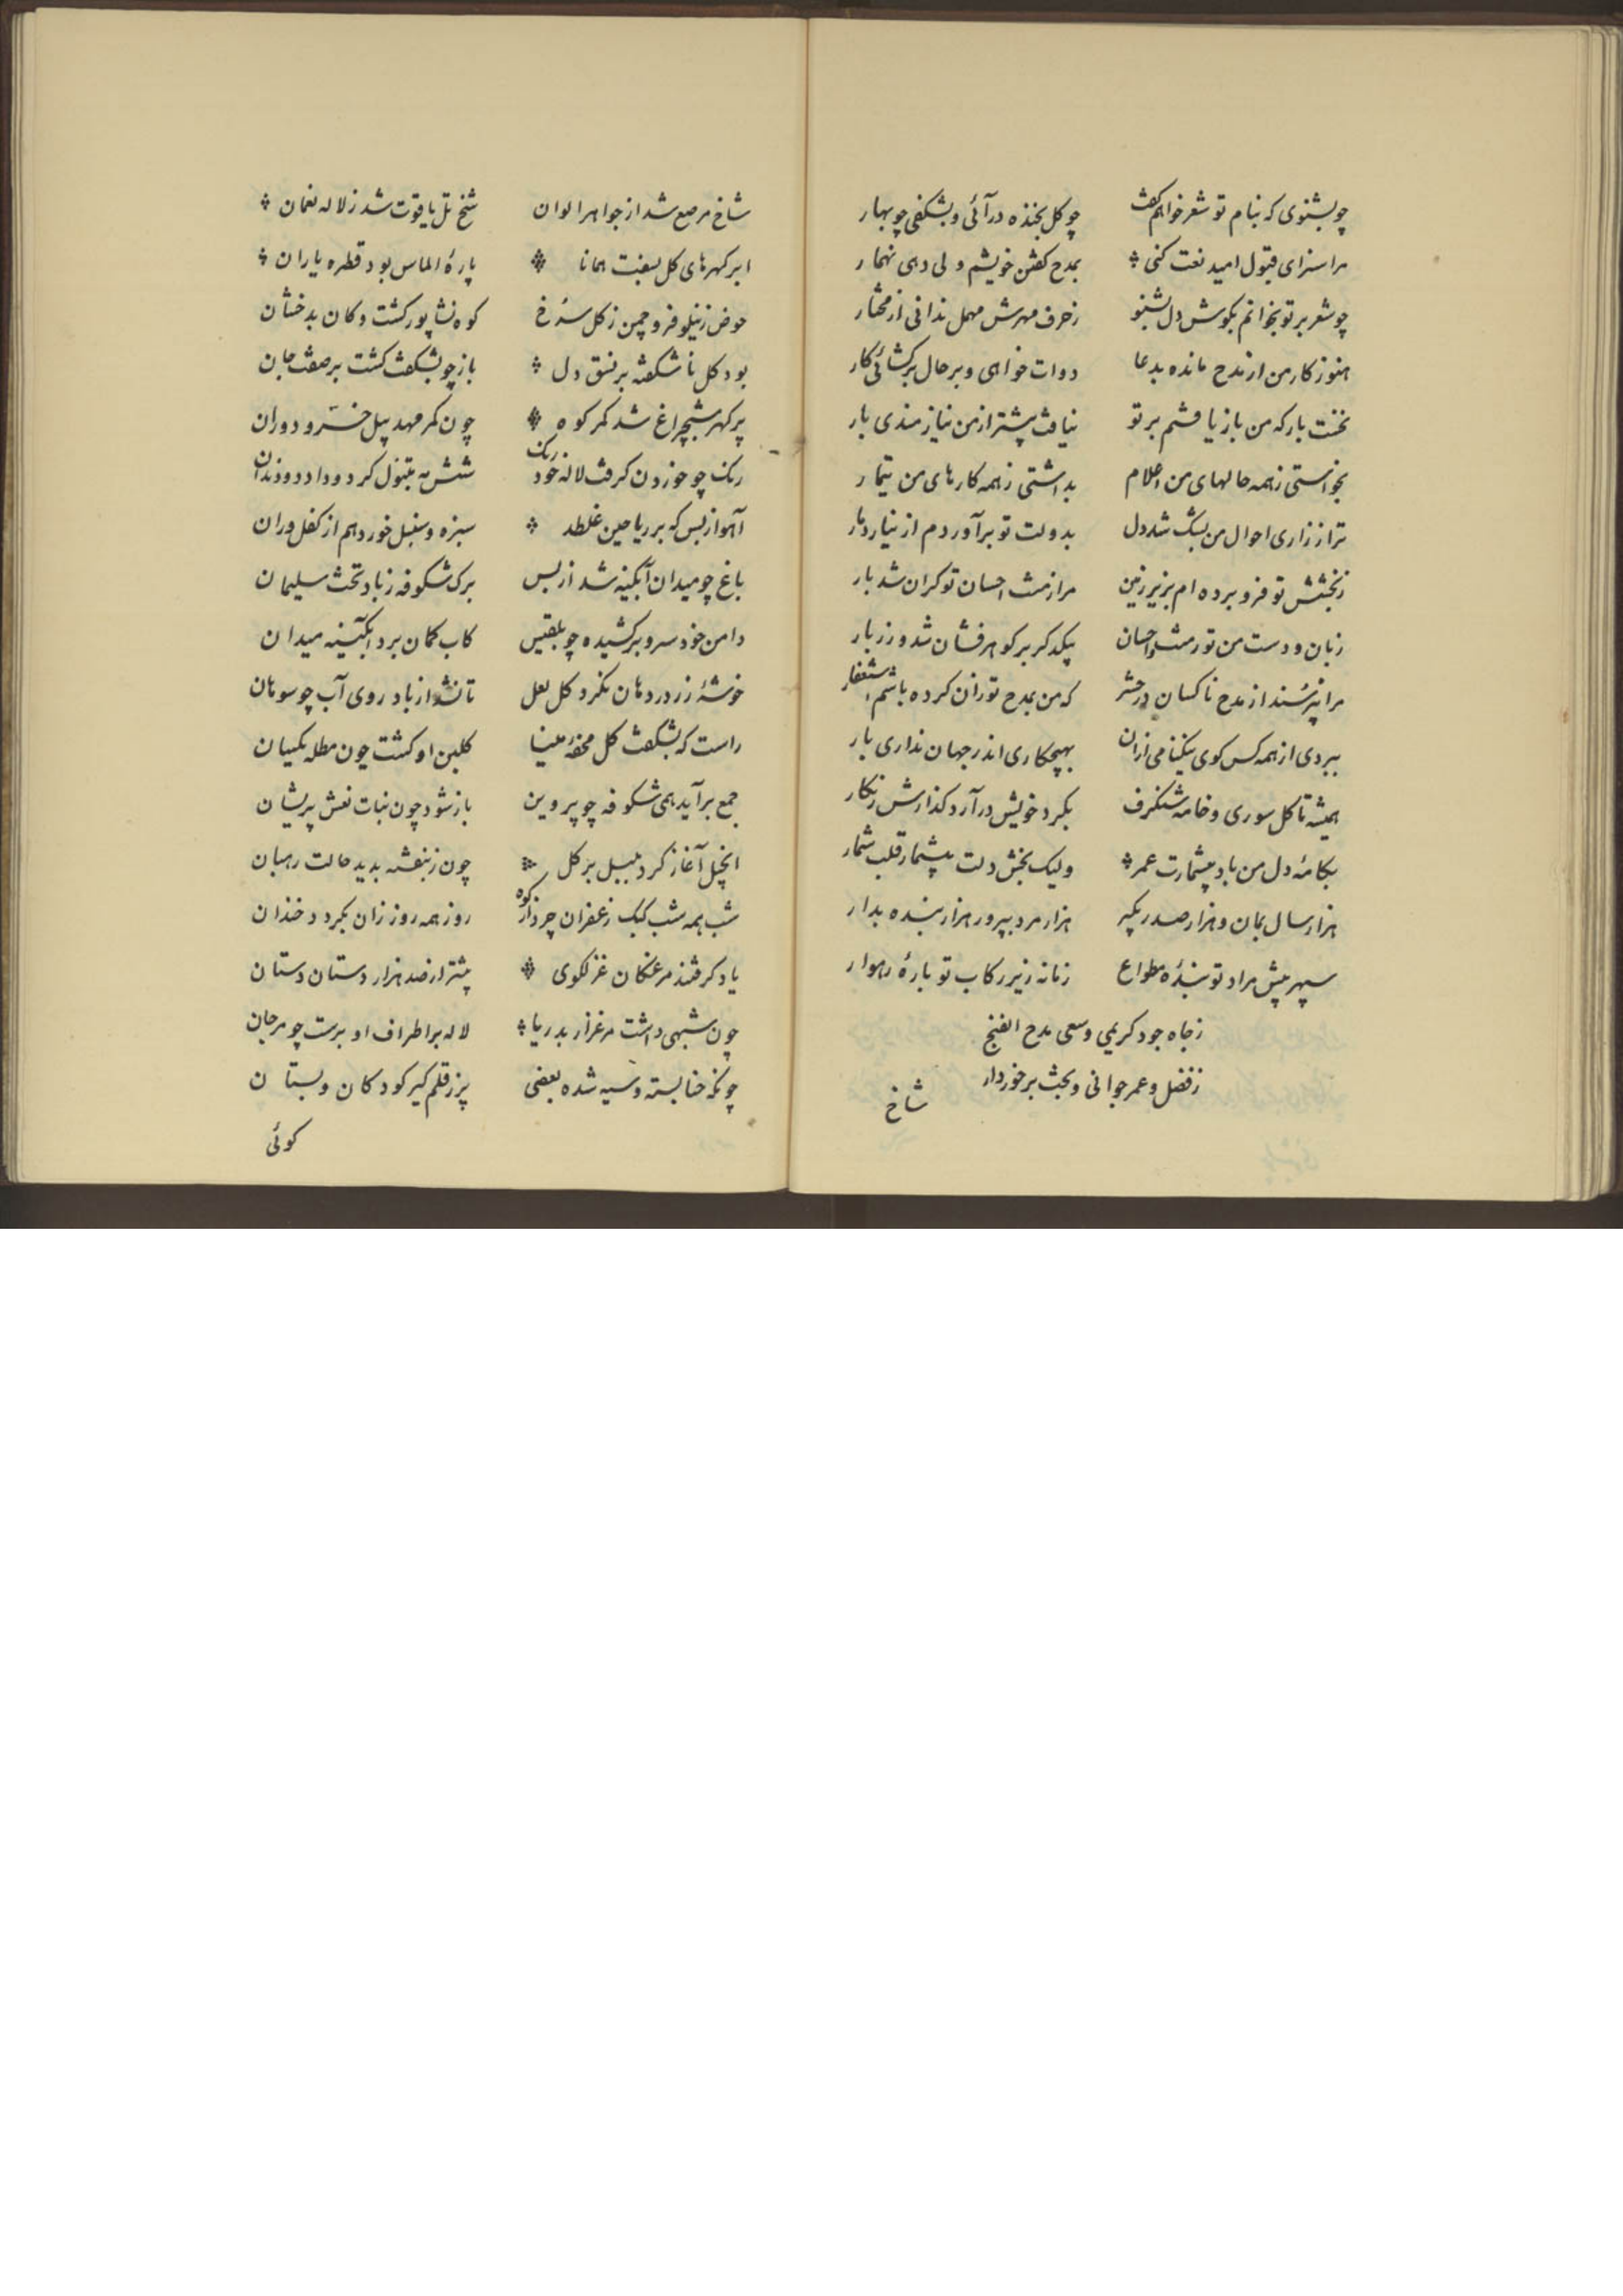 چو بشنوی که بنام تو شعر خواهم گفت چو کل بخنده درآئی و بشکفی چو بهار
مرا سزای قبول امید نعت کنی بمدح کفتن خویشم ولی دهی نهمار
چو شعر بر تو بخوانم بکوش دل شنو ز حرف مهرش مهمل ندانی از مختار
هنوز کار من از مدح مانده بدعا دوات خواهی و بر حال برکشائی کار
نخست بار که من باز یافتم بر تو نیافت پیشتر از من نیازمندی بار
بخواستی ز همه حالهای من اعلام بداشتی ز همه کارهای من تیمار
ترا ز زاری احوال من شد دل بدولت تو برآوردم از نیاز دمار
ز بخشش تو فرو برده ام بزیر زمین مرا ز منت احسان تو کران شد بار
زبان و دست من تو ز منت احسان یکدکر بر کوهرفشان شد و زربار
مرا نپرسند از مدح ناکسان در حشر که من بمدح تو زان کرده باشم استغفار
ببردی از همه کس کوی نیکنامی ازان بهیچکاری اندر جهان نداری یار
همیشه تا کل سوری و خامه شنکرف بکرد خویش درآرد کذارش زنکار
بکامه دل من باد بیشمارت عمر ولیک بخش دلت بیشمار قلب شمار
هزار سال بمان و هزار صدر بکیر هزار مرد بپرور هزار بنده بدار
سپهر پیش مراد تو بندۀ مطواع زمانه زیر رکاب تو بارۀ رهوار
ز جاه جود کریمی و سعی مدح الفنج
ز فضل و عمر جوانی و بخت برخوردار
شاخ
شاخ مرصع شد از جواهر الوان شخ تل یاقوت شد ز لاله نعمان
ابر کهرهای کل بسفت همانا پارۀ الماس بود قطره باران
حوض ز نیلوفر و چمن ز کل سرخ کوه نشاپور کشت و کان بدخشان
بود کل ناشکفته بر نسق دل باز چو بشکفت کشت بر صفت جان
پر کهر شبچراغ شد کمر کوه چون کمر مهد پیل خسرو دوران
رنک چو خوردن کرفت لاله خود رنک شش مه تنبول کرد و داد دو دندان
آهو از بس که بر ریاحین غلطد سبزه و سنبل خورد هم از کفل و ران
باغ چو میدان آبکینه شد از بس برک شکوفه ز باد تخت سلیمان
دامن خود سرو برکشیده چو بلقیس کاب کمان برد آبکینه میدان
خوشۀ زر در دهان نکرد کل لعل تا نشد از باد روی آب چو سوهان
راست که بشکفت کل محفۀ مینا کلبن او کشت چون مظله یکسان
جمع برآید همی شکوفه چو پروین باز شود چون بنات نعش پریشان
انجیل آغاز کرد بلبل بر کل چون ز بنفشه بدید حالت رهبان
شب همه شب کبک زعفران چرد از کوه روز همه روز زان بکردد خندان
یاد کرفتند مرغکان غزلکوی بیشتر از صد هزار دستان دستان
چون شبهی داشت مرغزار بدریا لاله بر اطراف او برست چو مرجان
چونکه حنا بسته و سیه شده بعضی پنجه قلم کیر کودکان دبستان
کوئی